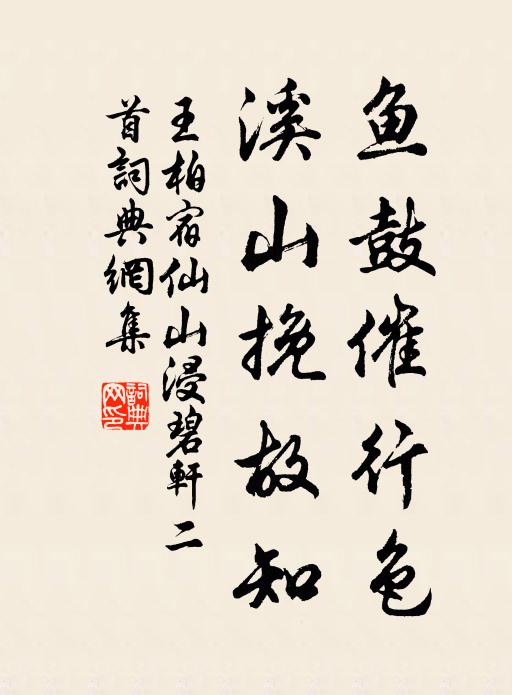 鱼鼓催行色
溪山挽故知
王柏宿仙山浸碧軒二
首詞典網集
詞典
网印